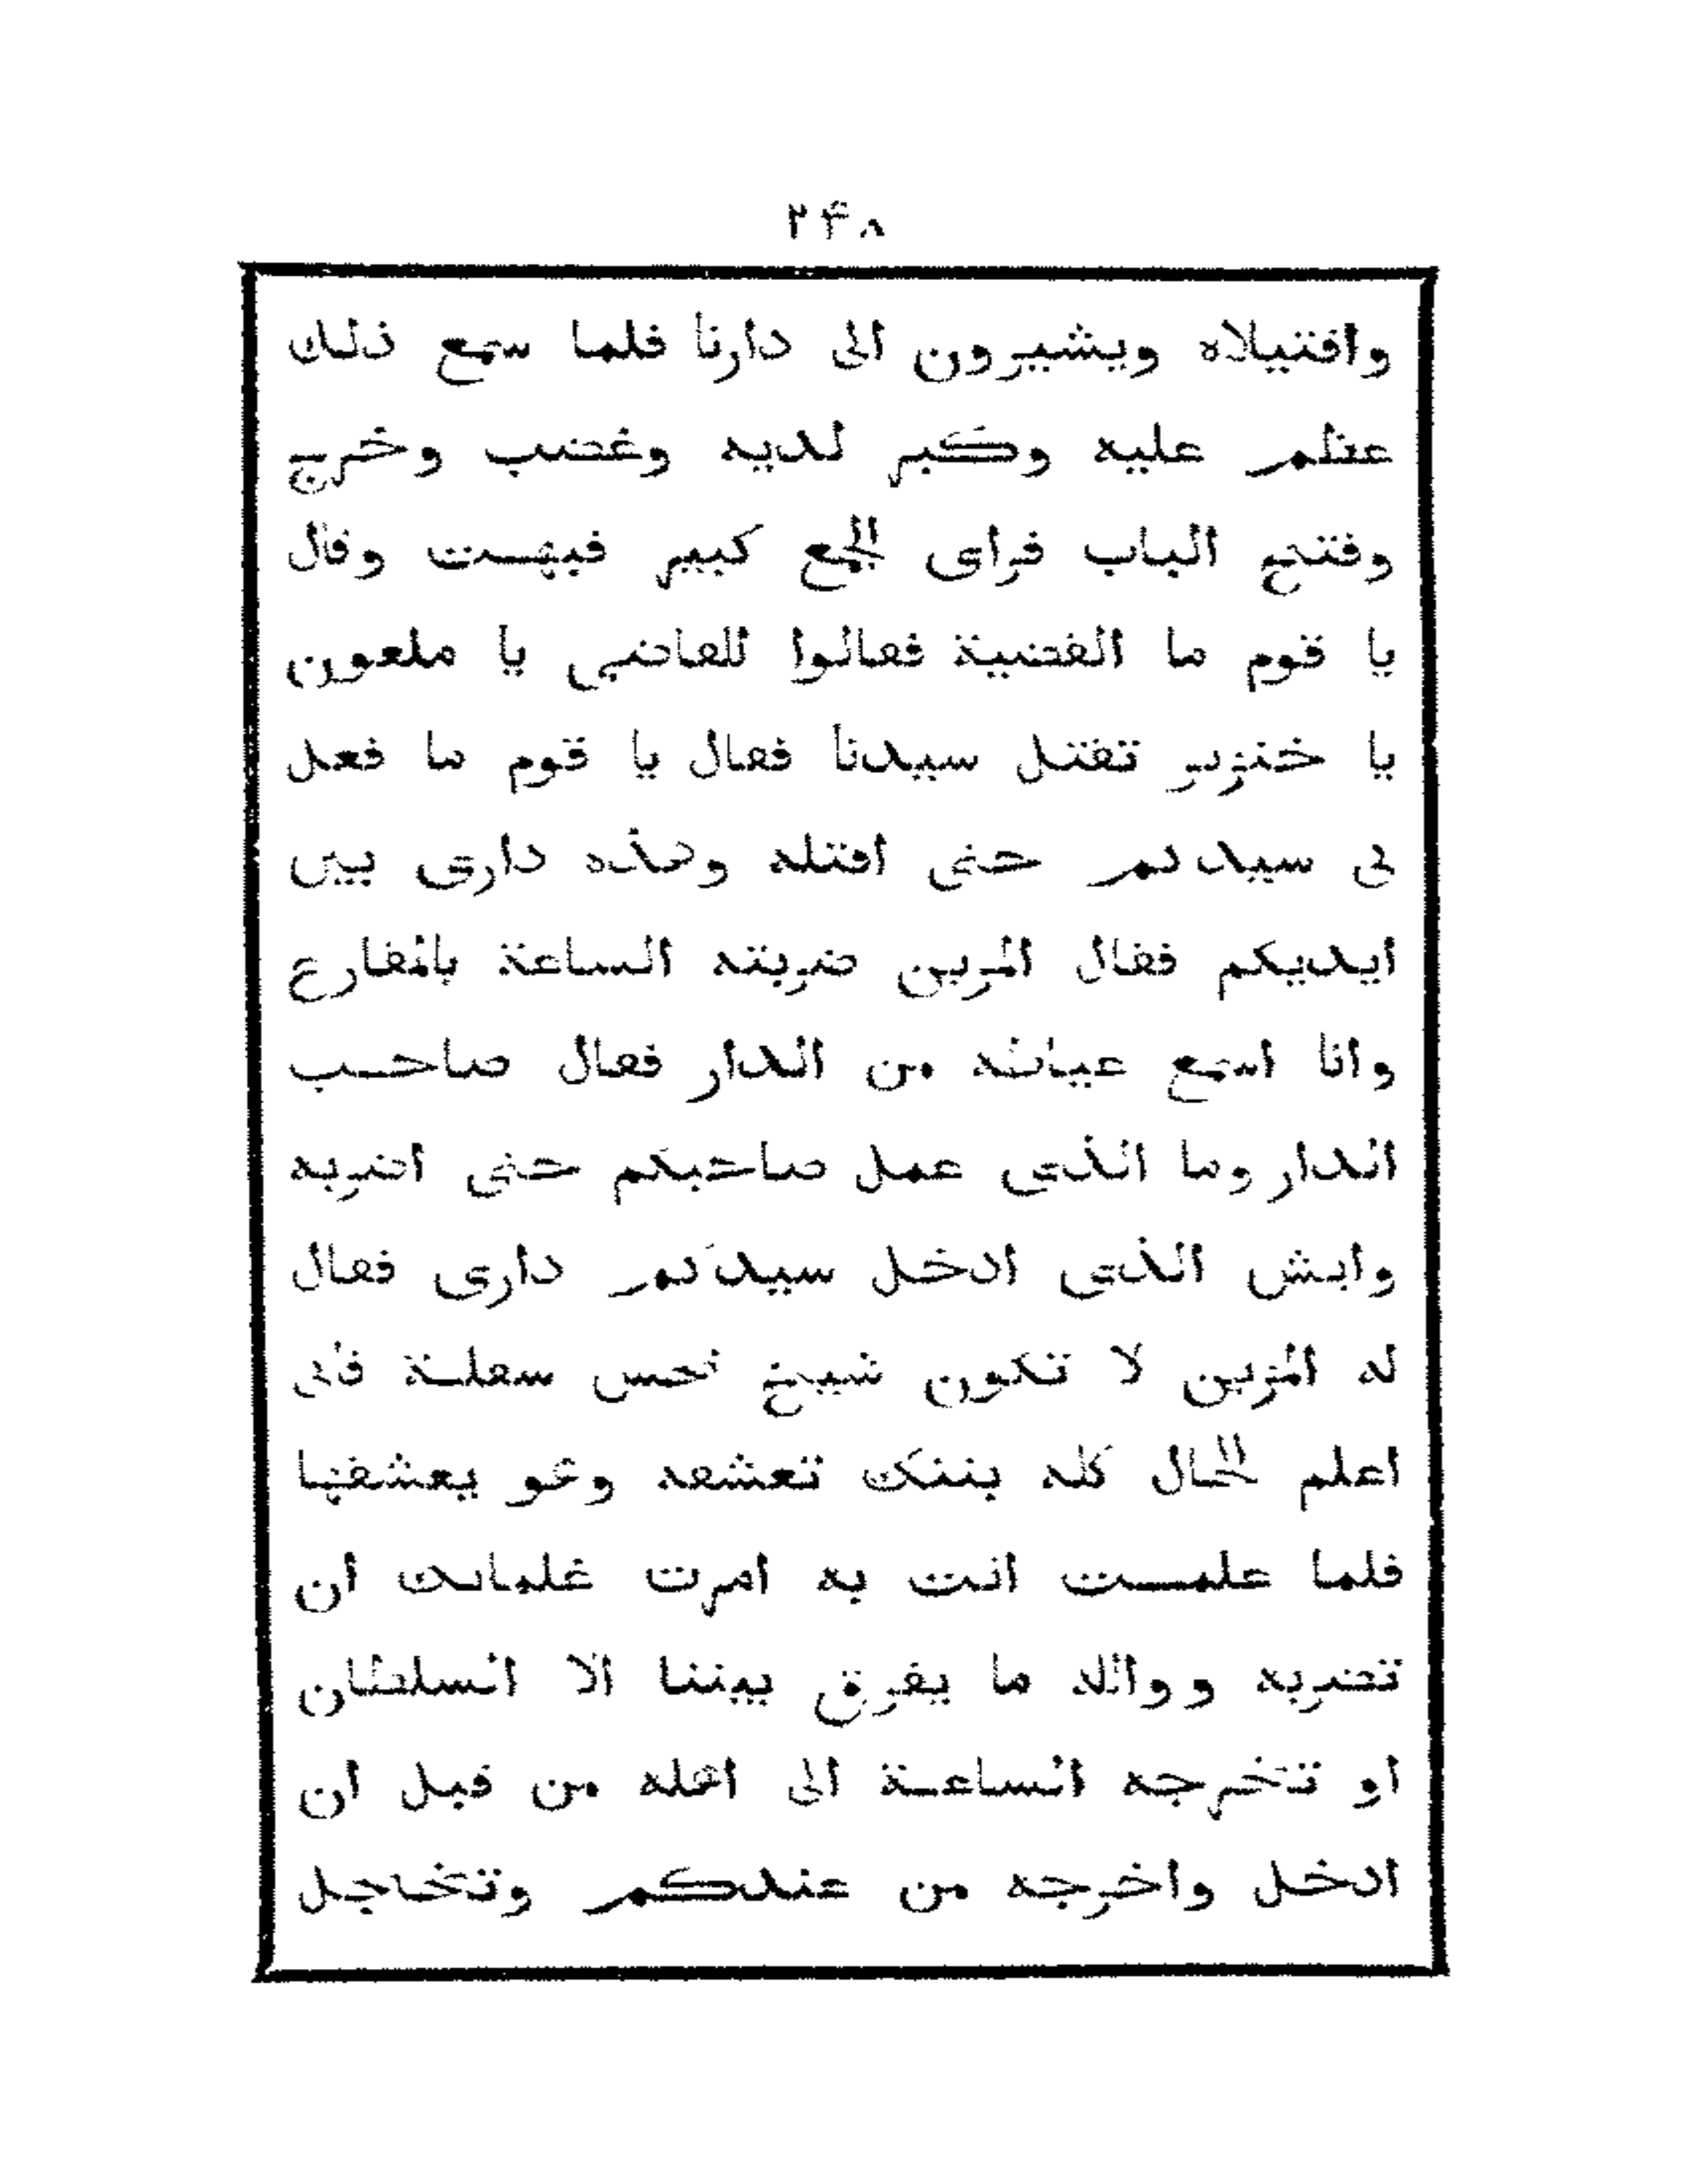 ٢۴٨
واقتيلاه ويشيرون الى دارنا فلما سمع ذلك
عظم عليه وكبر لديه وغضب وخرج
وفتح الباب فراى الجمع كبير فبهت وقال
يا قوم ما القضية فقالوا للقاضى يا ملعون
يا خنزير تقتل سيدنا فقال يا قوم ما فعل
بى سيدكم حتى اقتله وهذه دارى بين
ايديكم فقال المزين ضربته الساعة بالمقارع
وانا اسمع عياطه من الدار فقال صاحب
الدار وما الذى عمل صاحبكم حتى اضربه
وايش الذى ادخل سيدكم دارى فقال
له المزين لا تكون شيخ نحس سفلة فانى
اعلم الحال كله بنتك تعشقه وهو يعشقها
فلما علمت انت به امرت غلمانك ان
تضربه ووالله ما يفرق بيننا الا السلطان
او تخرجه الساعة الى اهله من قبل ان
ادخل واخرجه من عندكم وتخاجل